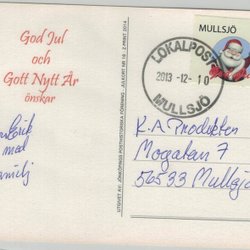 God Jul
och
Gott Nytt År
önskar
Erik
med
familj
UTGIVET AV: JÖNKÖPINGS POSTHISTORISKA FÖRENING - JULKORT NR 19
MULLSJÖ
LOKALPOST
2013-12-10
MULLSJÖ
K.A Produkter
Mogatan 7
56533 Mullsjö